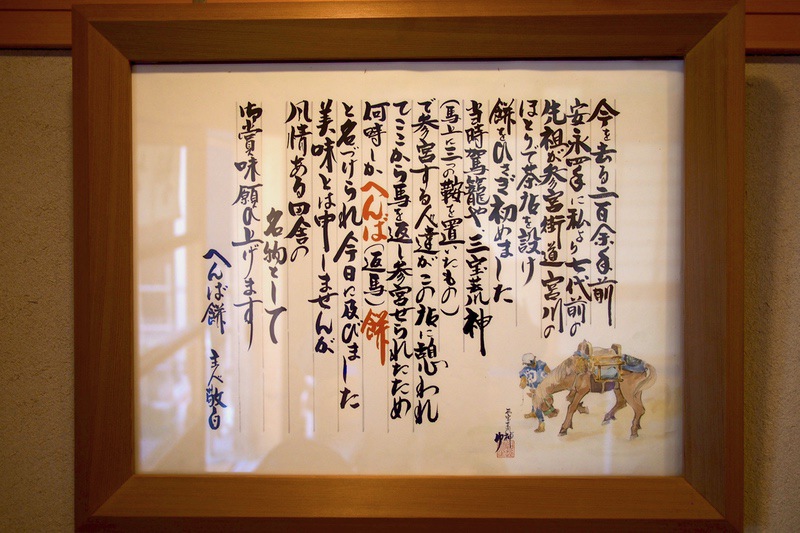 今を去る二百余年前
安永四年に私より七代前の
先祖が参宮街道宮川の
ほとりで茶店を設け
餅をひさぎ初めました
当時駕籠や三宝荒神
(馬上に三つの鞍を置いたもの)
で参宮する人達がこの店に憩われ
てここから馬を返し参宮せられたため
何時しかへんば(返馬)餅
と名づけられ今日に及びました
美味とは申しませんが
風情ある田舎の
名物として
御賞味願い上げます
へんば餅 主人敬白